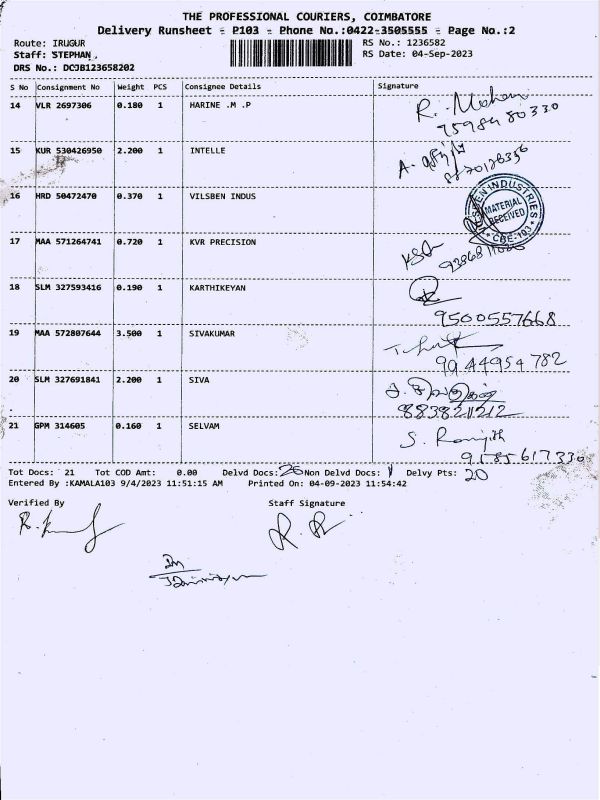 THE PROFESSIONAL COURIERS, COIMBATORE
Delivery Runsheet - P103 - Phone No.:0422-3505555 - Page No.:2
Route: IRUGUR RS No.: 1236582
Staff: STEPHAN, RS Date: 04-Sep-2023
DRS No.: DCJB123658202
S No Consignment No Weight PCS Consignee Details Signature
14 VLR 2697306 0.180 1 HARINE .M .P R. Mohan
15 KUR 530426950 2.200 1 INTELLE
16 HRD 50472470 0.370 1 VILSBEN INDUS
INDUSTRIES
MATERIAL
RECEIVED
CBE-103
17 MAA 571264741 0.720 1 KVR PRECISION
18 SLM 327593416 0.190 1 KARTHIKEYAN
9500557668
19 MAA 572807644 3.500 1 SIVAKUMAR
9944954782
20 SLM 327691841 2.200 1 SIVA
8838211212
21 GPM 314605 0.160 1 SELVAM S. Ranjith
9585617330
Tot Docs: 21 Tot COD Amt: 0.00 Delvd Docs: 20 Non Delvd Docs: 1 Delvy Pts: 20
Entered By :KAMALA103 9/4/2023 11:51:15 AM Printed On: 04-09-2023 11:54:42
Verified By Staff Signature